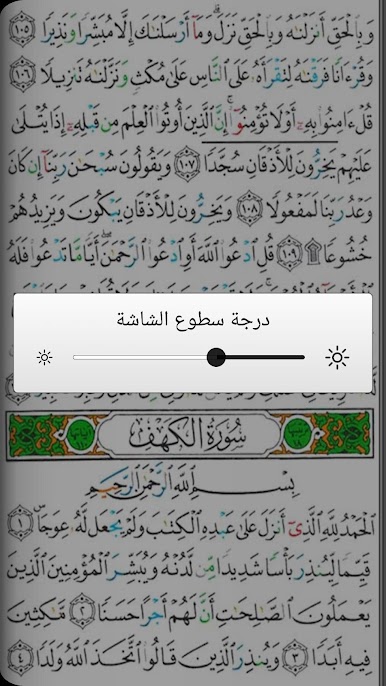 وَبِٱلۡحَقِّ أَنزَلۡنَٰهُ وَبِٱلۡحَقِّ نَزَلَۗ وَمَآ أَرۡسَلۡنَٰكَ إِلَّا مُبَشِّرٗا وَنَذِيرٗا ١٠٥
وَقُرۡءَانٗا فَرَقۡنَٰهُ لِتَقۡرَأَهُۥ عَلَى ٱلنَّاسِ عَلَىٰ مُكۡثٖ وَنَزَّلۡنَٰهُ تَنزِيلٗا ١٠٦
قُلۡ ءَامِنُواْ بِهِۦٓ أَوۡ لَا تُؤۡمِنُوٓاْۚ إِنَّ ٱلَّذِينَ أُوتُواْ ٱلۡعِلۡمَ مِن قَبۡلِهِۦٓ إِذَا يُتۡلَىٰ
عَلَيۡهِمۡ يَخِرُّونَۤ لِلۡأَذۡقَانِۤ سُجَّدٗا ١٠٧ وَيَقُولُونَ سُبۡحَٰنَ رَبِّنَآ إِن كَانَ
وَعۡدُ رَبِّنَا لَمَفۡعُولٗا ١٠٨ وَيَخِرُّونَ لِلۡأَذۡقَانِ يَبۡكُونَ وَيَزِيدُهُمۡ
خُشُوعٗا۩ ١٠٩ قُلِ ٱدۡعُواْ ٱللَّهَ أَوِ ٱدۡعُواْ ٱلرَّحۡمَٰنَۖ أَيّٗا مَّا تَدۡعُواْ فَلَهُ
درجة سطوع الشاشة
سُورَةُ الكَهۡفِ
بِسۡمِ ٱللَّهِ ٱلرَّحۡمَٰنِ ٱلرَّحِيمِ
ٱلۡحَمۡدُ لِلَّهِ ٱلَّذِيٓ أَنزَلَ عَلَىٰ عَبۡدِهِ ٱلۡكِتَٰبَ وَلَمۡ يَجۡعَل لَّهُۥ عِوَجَاۜ ١
قَيِّمٗا لِّيُنذِرَ بَأۡسٗا شَدِيدٗا مِّن لَّدُنۡهُ وَيُبَشِّرَ ٱلۡمُؤۡمِنِينَ ٱلَّذِينَ
يَعۡمَلُونَ ٱلصَّٰلِحَٰتِ أَنَّ لَهُمۡ أَجۡرًا حَسَنٗا ٢ مَّٰكِثِينَ
فِيهِ أَبَدٗا ٣ وَيُنذِرَ ٱلَّذِينَ قَالُواْ ٱتَّخَذَ ٱللَّهُ وَلَدٗا ٤